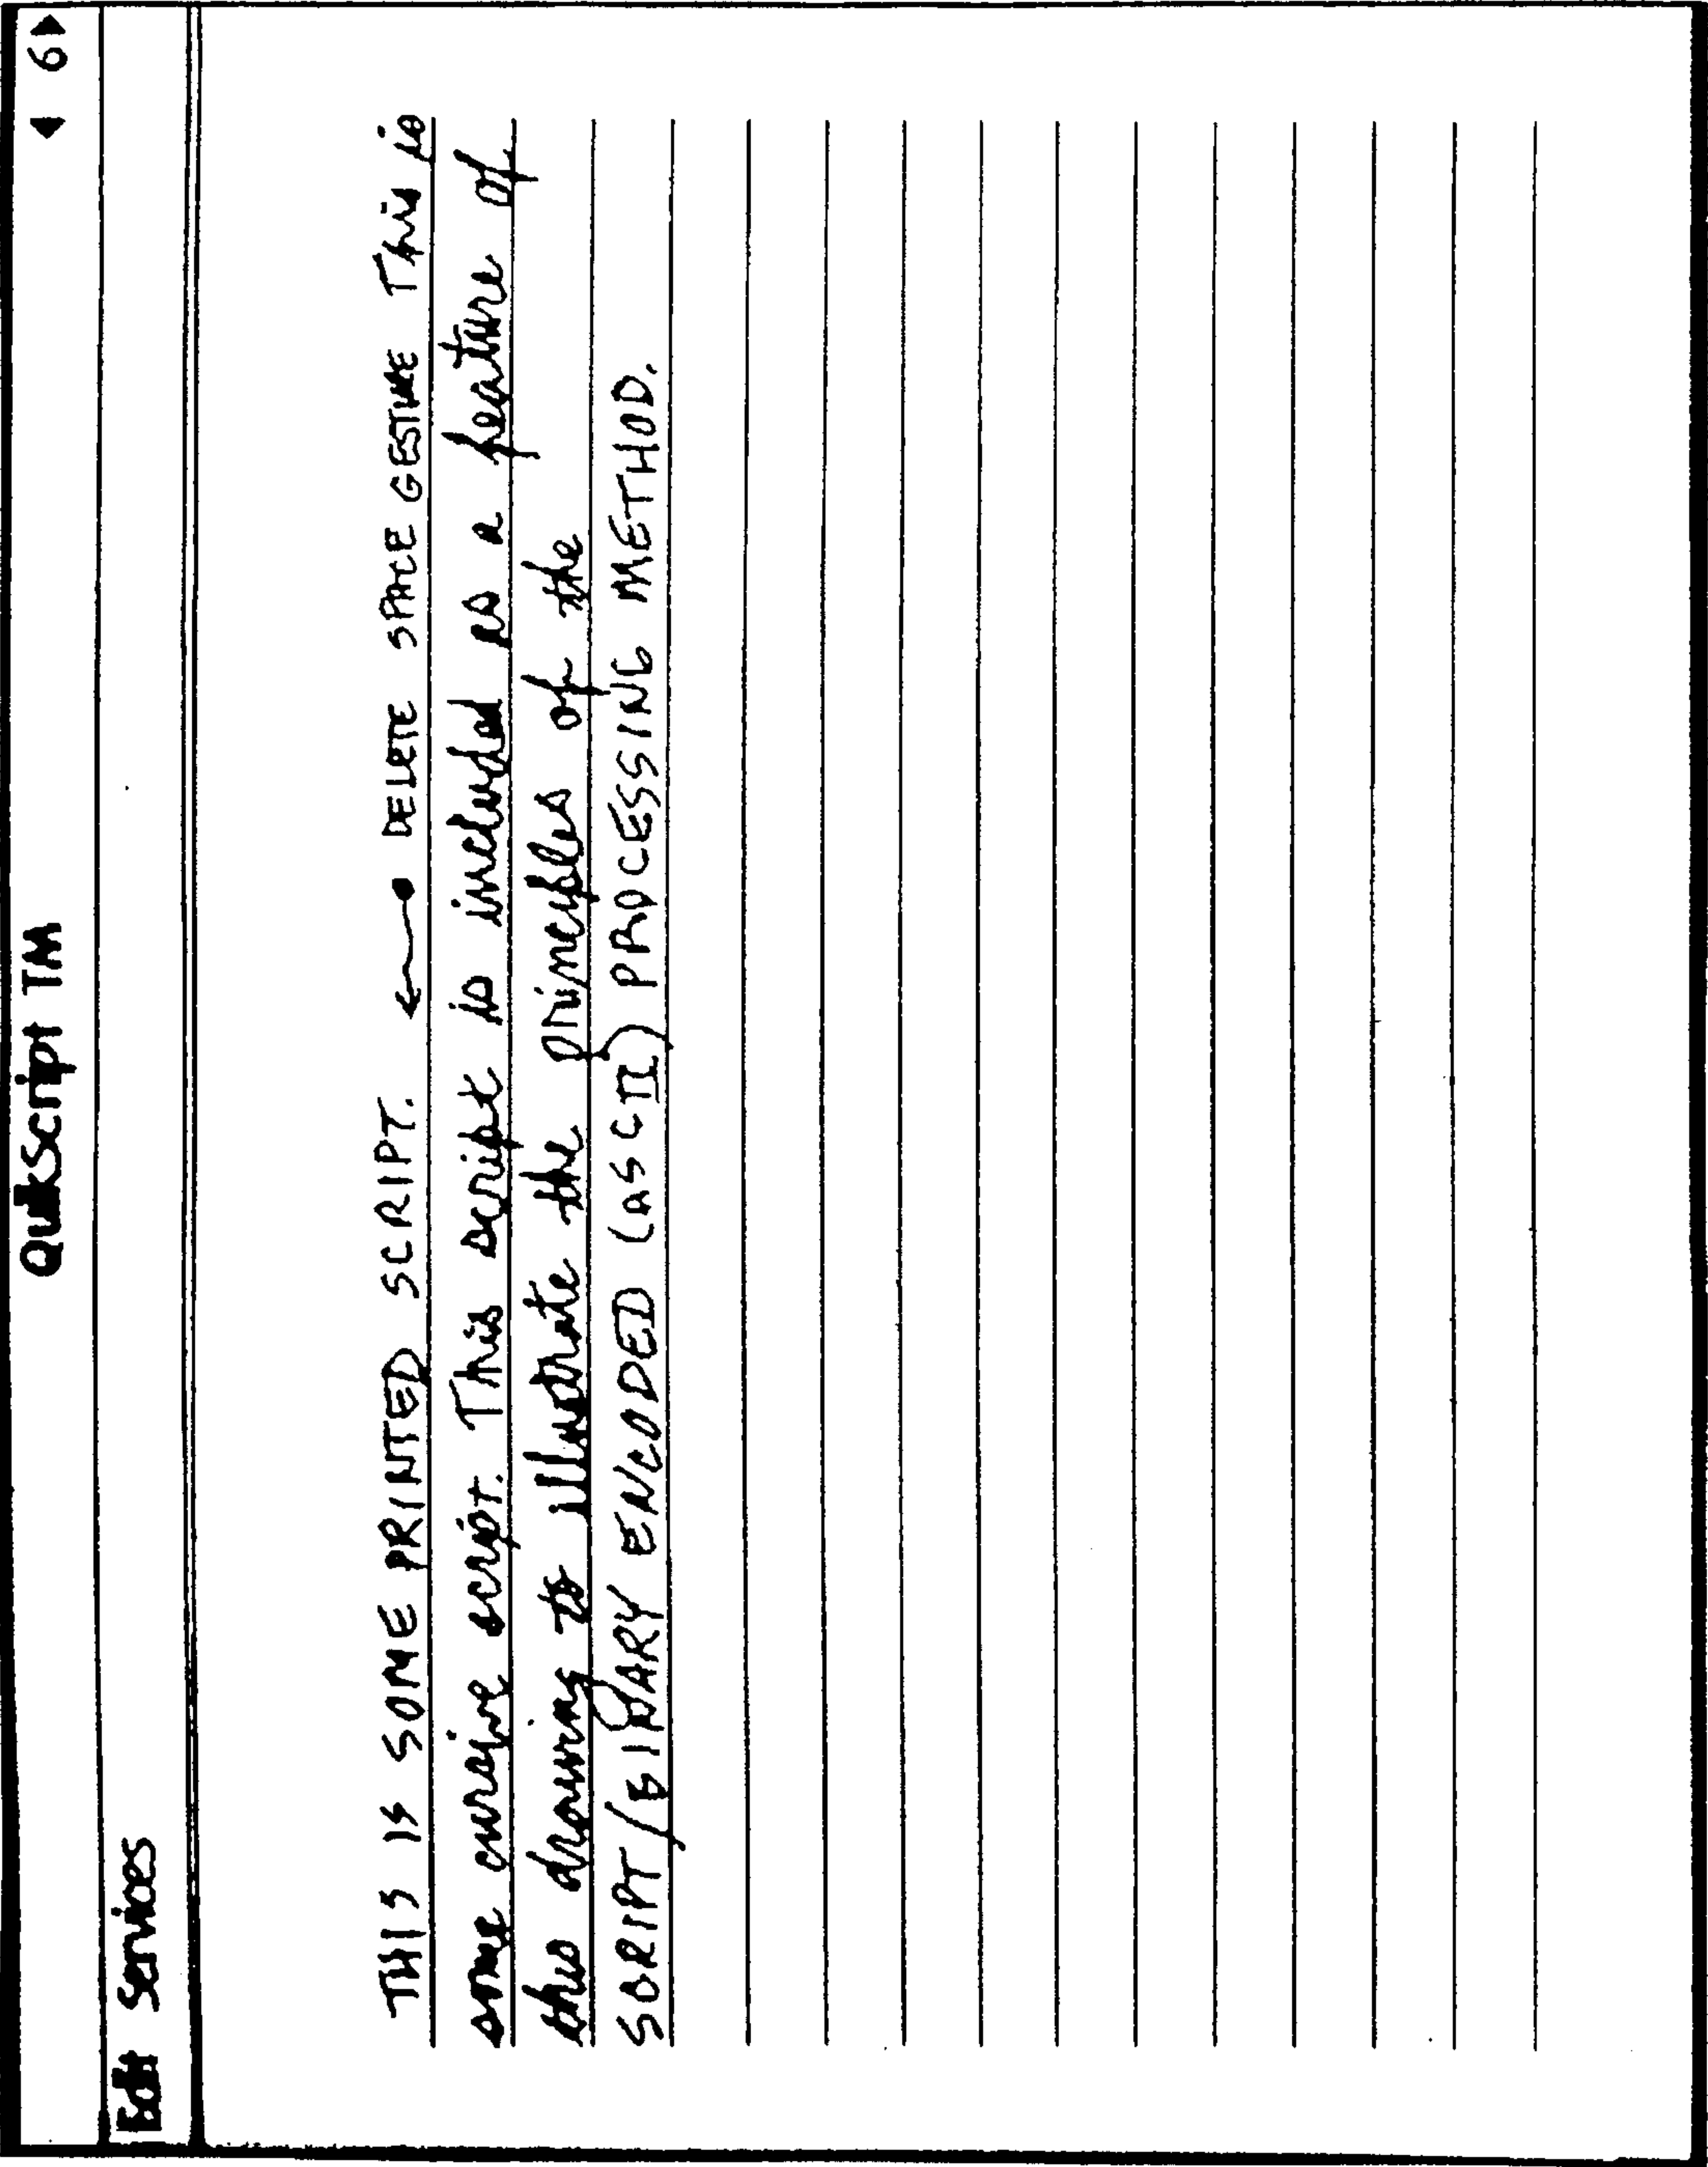 QuikScript TM ◀ 6 ▶
Edit Services
THIS IS SOME PRINTED SCRIPT. ←● DELETE SPACE GESTURE This is
some cursive script. This script is included as a feature of
this drawing to illustrate the principles of the
SCRIPT/BINARY ENCODED (ASCII) PROCESSING METHOD.